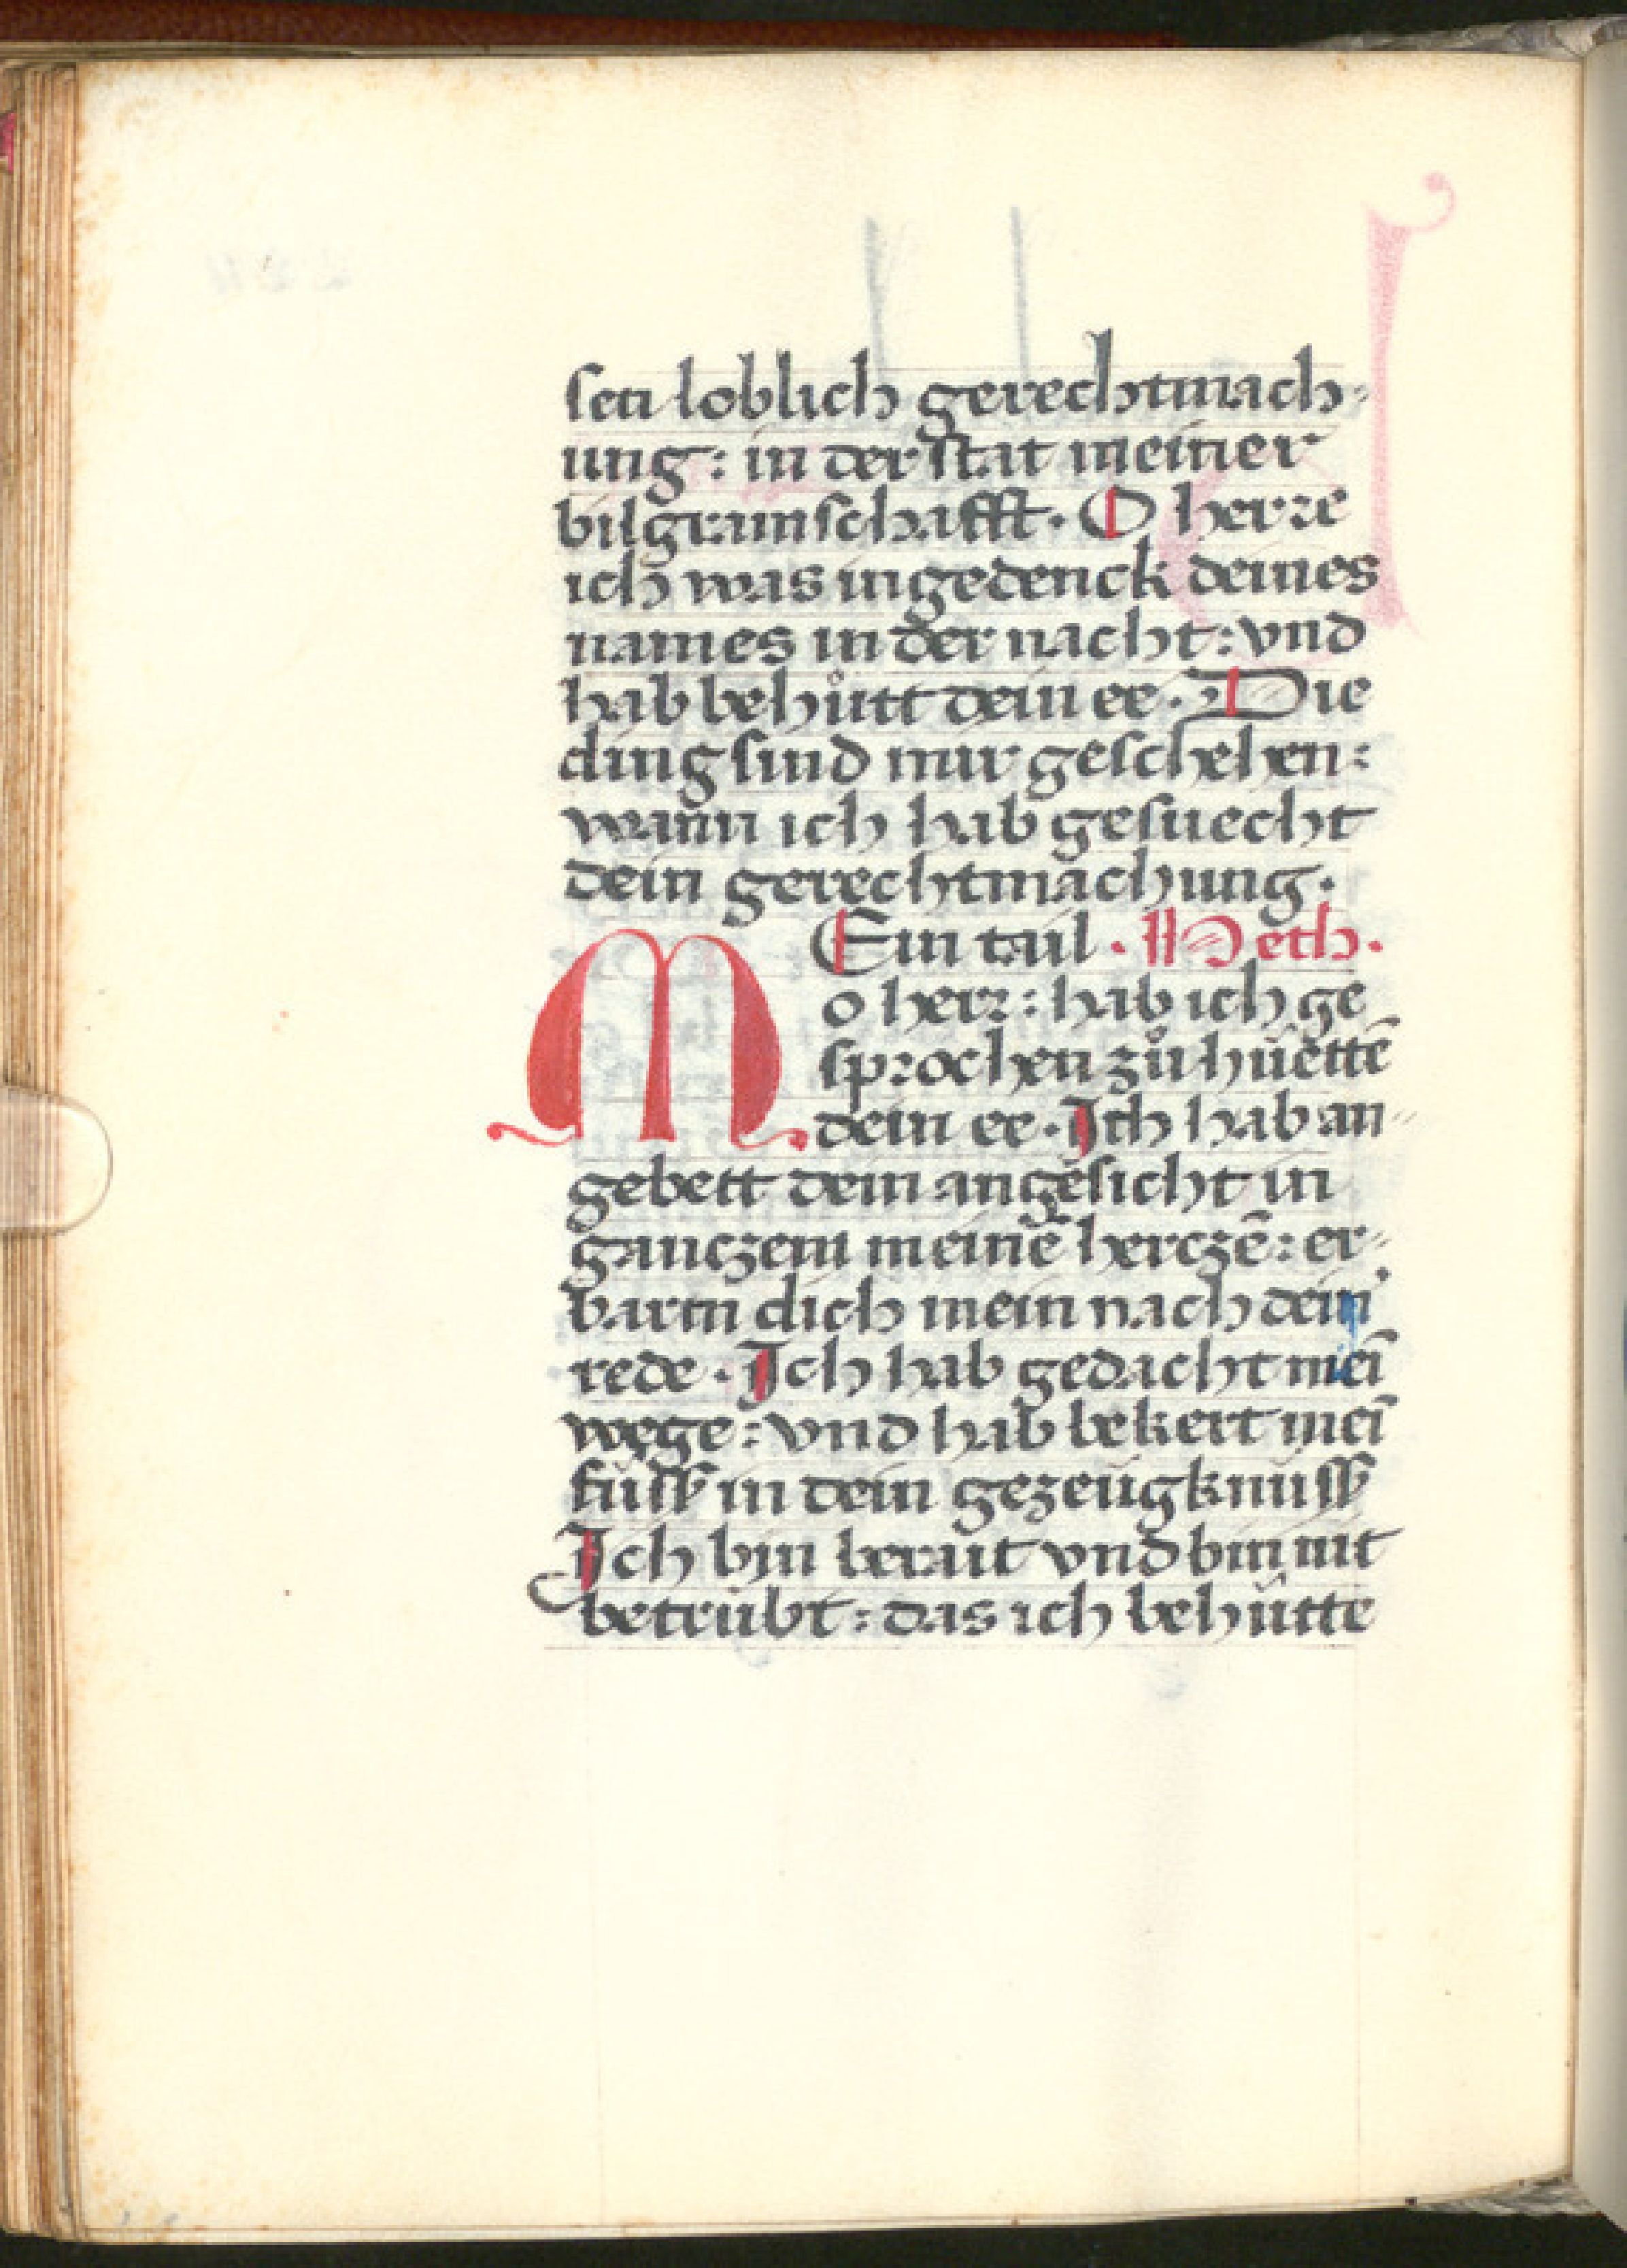 sen loblich gerechtmach-
ung: in der stat meiner
bilgramschafft. O herre
ich was ingedenck deines
names in der nacht: vnd
hab behůtt dein ee. Die
ding sind mir geschehen:
wann ich hab gesuecht
dein gerechtmachung.
MEin tail. Heth.
o herr: hab ich ge
sprochen zů hůettē
dein ee. Ich hab an-
gebett dein angesicht in
ganczem meinē herczē: er-
barm dich mein nach dein
rede. Ich hab gedacht mei
wege: vnd hab bekert mei
fůss in dein gezeügknuss
Ich bin berait vnd bin nit
betrübt: das ich behůtte